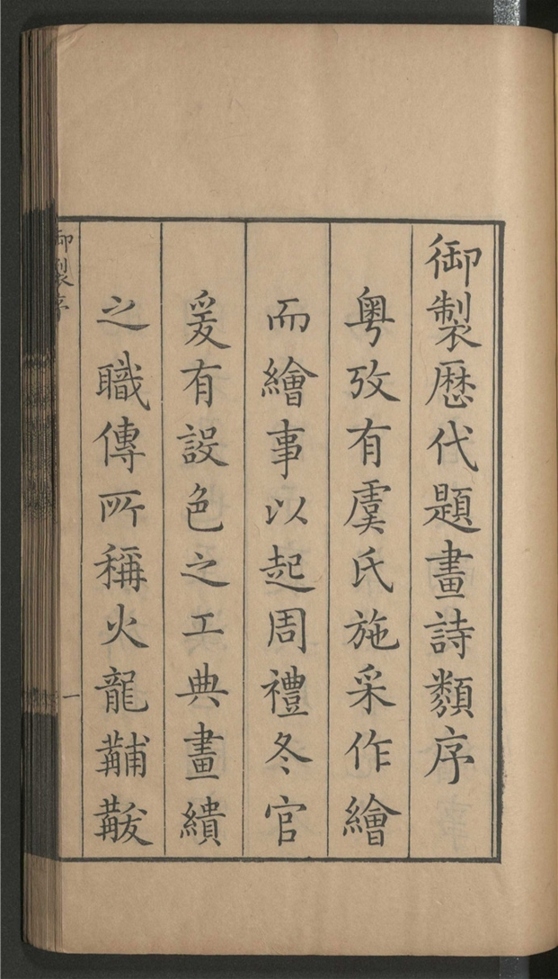 御製歷代題畫詩類序
粤攷有虞氏施采作繪
而繪事以起周禮冬官
爰有設色之工典畫繢
之職傳所稱火龍黼黻
御製序
一